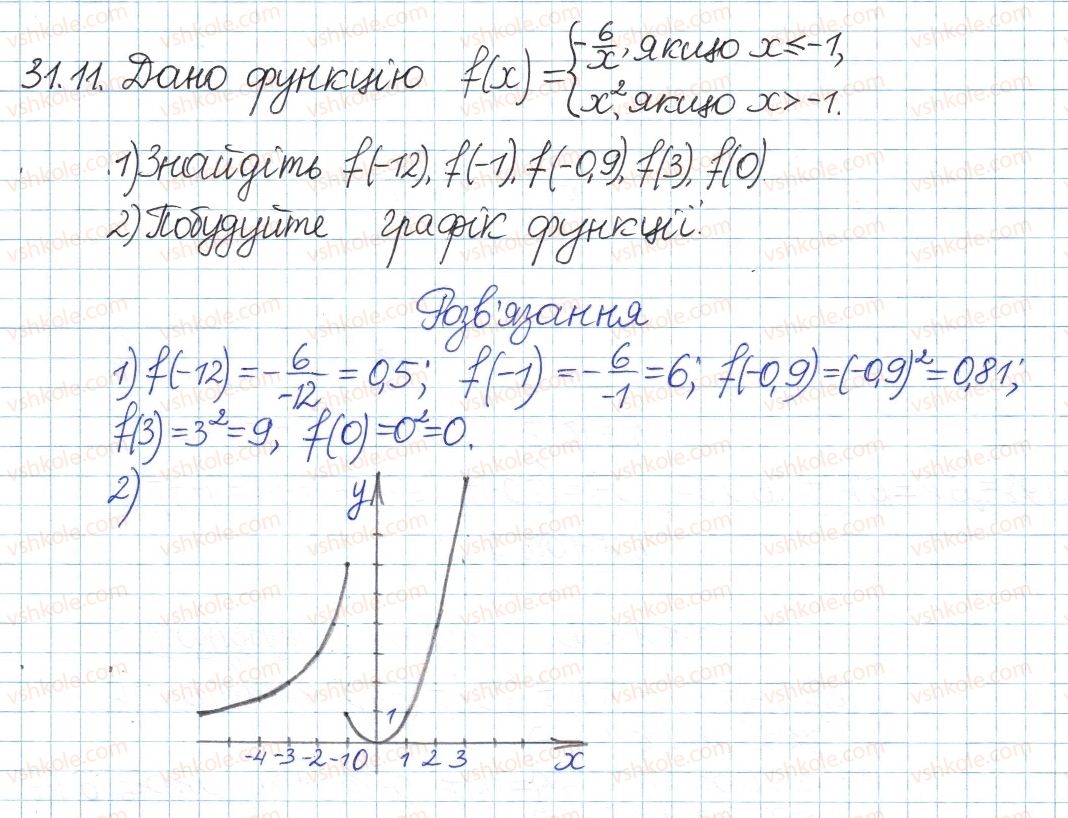 31.11. Дано функцію f(x) = { -6/x, якщо x ≤ -1,
x², якщо x > -1.
1) Знайдіть f(-12), f(-1), f(-0,9), f(3), f(0)
2) Побудуйте графік функції.
Розв'язання
1) f(-12) = -6/-12 = 0,5; f(-1) = -6/-1 = 6; f(-0,9) = (-0,9)² = 0,81;
f(3) = 3² = 9, f(0) = 0² = 0.
2)
y
1
-4 -3 -2 -1 0 1 2 3 x
vshkole.com